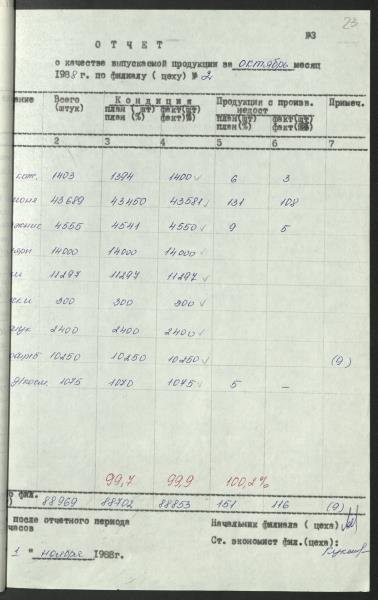 23
№3
ОТЧЕТ
о качестве выпускаемой продукции за октябрь месяц
1988 г. по филиалу ( цеху) № 2
Всего (штук) Кондиция Продукция с произв. недост Примеч.
план ( шт) план (%) факт(шт) факт(%) план(шт) план(%) факт(шт) факт(%)
2 3 4 5 6 7
кот. 1403 1394 1400 6 3
43689 43450 43581 131 108
4555 4541 4550 9 5
14000 14000 14000
11297 11297 11297
300 300 300
2400 2400 2400
10250 10250 10250 (9)
1075 1070 1075 5 –
99,7 99,9 100,2%
фил.
88969 88702 88853 151 116 (9)
после отчетного периода
часов
Начальник филиала ( цеха)
Ст. экономист фил.(цеха):
1 " ноября 1988г.